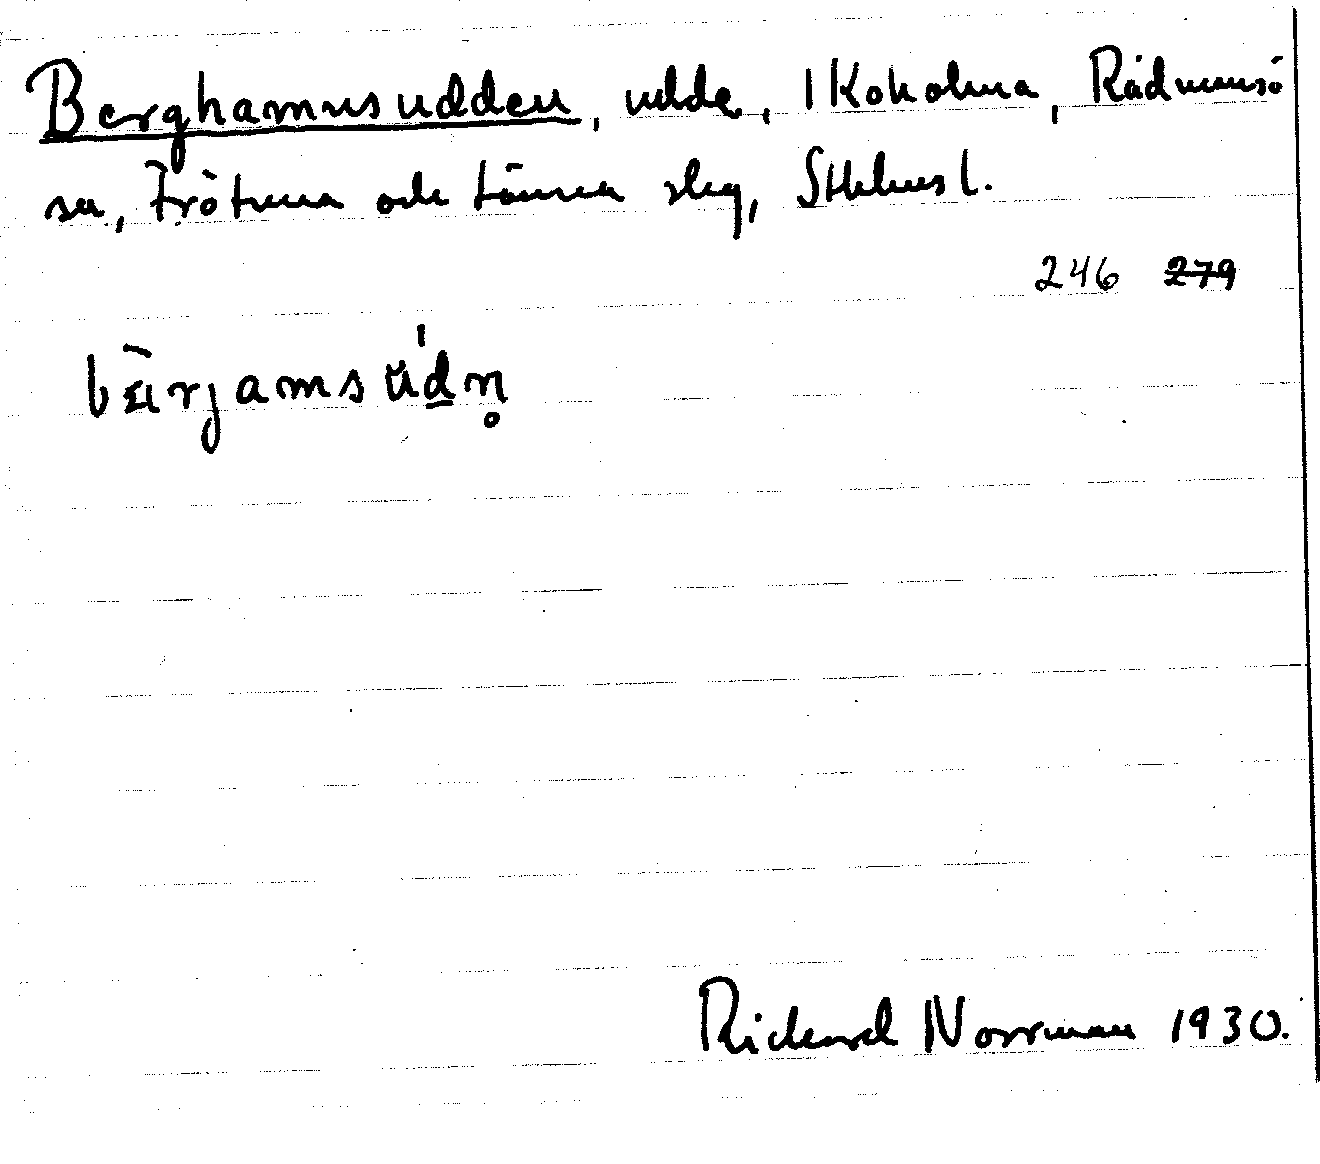 Berghamnsudden, udde, 1 Kokolma, Rådmansö
sn, Frötuna och Länna slag, Sthlms l.
246 279
bärjamsúdn̥
Rickard Norrman 1930.